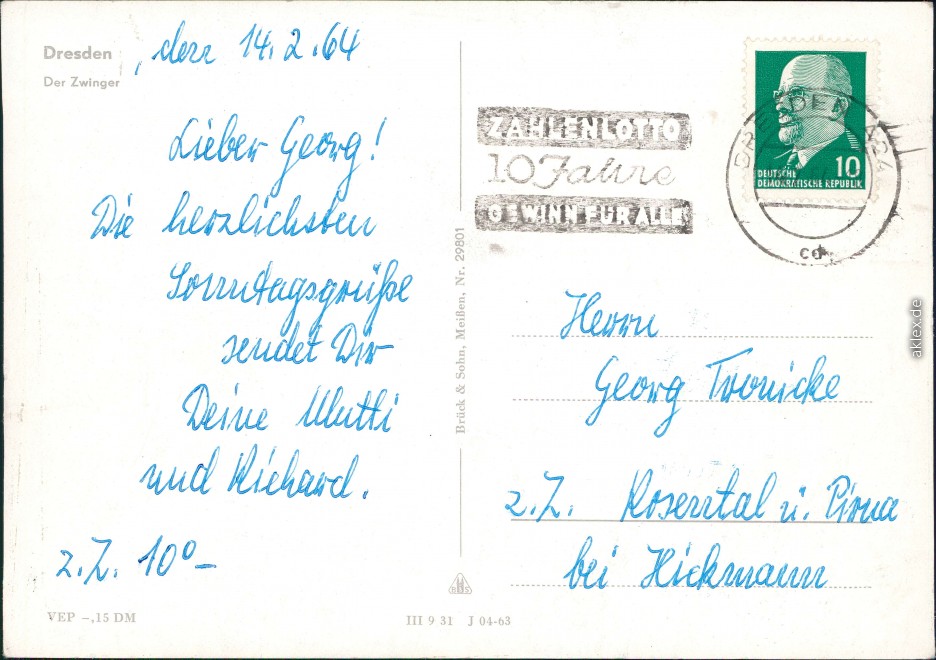 Dresden
Der Zwinger
, den 14.2.64
Lieber Georg!
Die herzlichsten
Sonntagsgrüße
sendet Dir
Deine Mutti
und Richard.
z.Z. 10°-
VEP -,15 DM
Brück & Sohn, Meißen, Nr. 29801
III 9 31 J 04-63
ZAHLENLOTTO
10 Jahre
GEWINN FÜR ALLE
DRESDEN A24
cd
10
DEUTSCHE
DEMOKRATISCHE REPUBLIK
Herrn
Georg Tronicke
z.Z. Rosental ü. Pirna
bei Hickmann
aklex.de